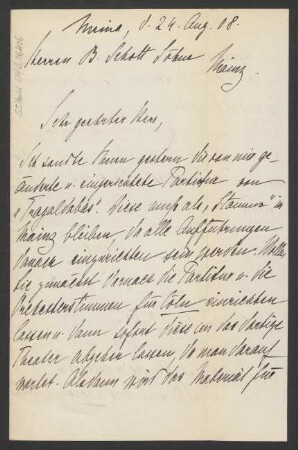 Meina, d. 24. Aug. 08.
Herren B. Schott Söhne
Mainz.
Sehr geehrter Herr,
Ich sandte Ihnen gestern die von mir ge
änderte u. eingerichtete Partitur von
"Tragaldabas". Diese muß als "Stamm" in
Mainz bleiben da alle Aufführungen
danach einzurichten sein werden. Wollen
Sie zunächst danach die Partitur u. die
Orchesterstimmen für Cöln einrichten
lassen u. dann sofort diese an das dortige
Theater abgehen lassen, da man darauf
wartet. Alsdann wird das Material für